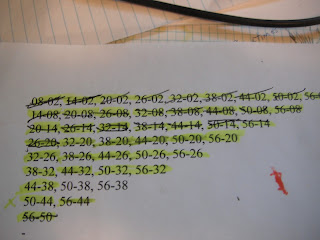 08-02, 14-02, 20-02, 26-02, 32-02, 38-02, 44-02, 50-02, 56-
14-08, 20-08, 26-08, 32-08, 38-08, 44-08, 50-08, 56-08
20-14, 26-14, 32-14, 38-14, 44-14, 50-14, 56-14
26-20, 32-20, 38-20, 44-20, 50-20, 56-20
32-26, 38-26, 44-26, 50-26, 56-26
38-32, 44-32, 50-32, 56-32
44-38, 50-38, 56-38
50-44, 56-44
56-50